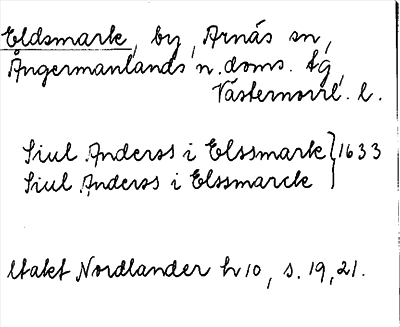 Eldsmark, by, Arnäs sn,
Ångermanlands n. doms. tg,
Västernorrl. l.
Siul Anderss i Elssmark } 1633
Siul Anderss i Elssmarck
Utakt Nordlander h 10, s. 19, 21.